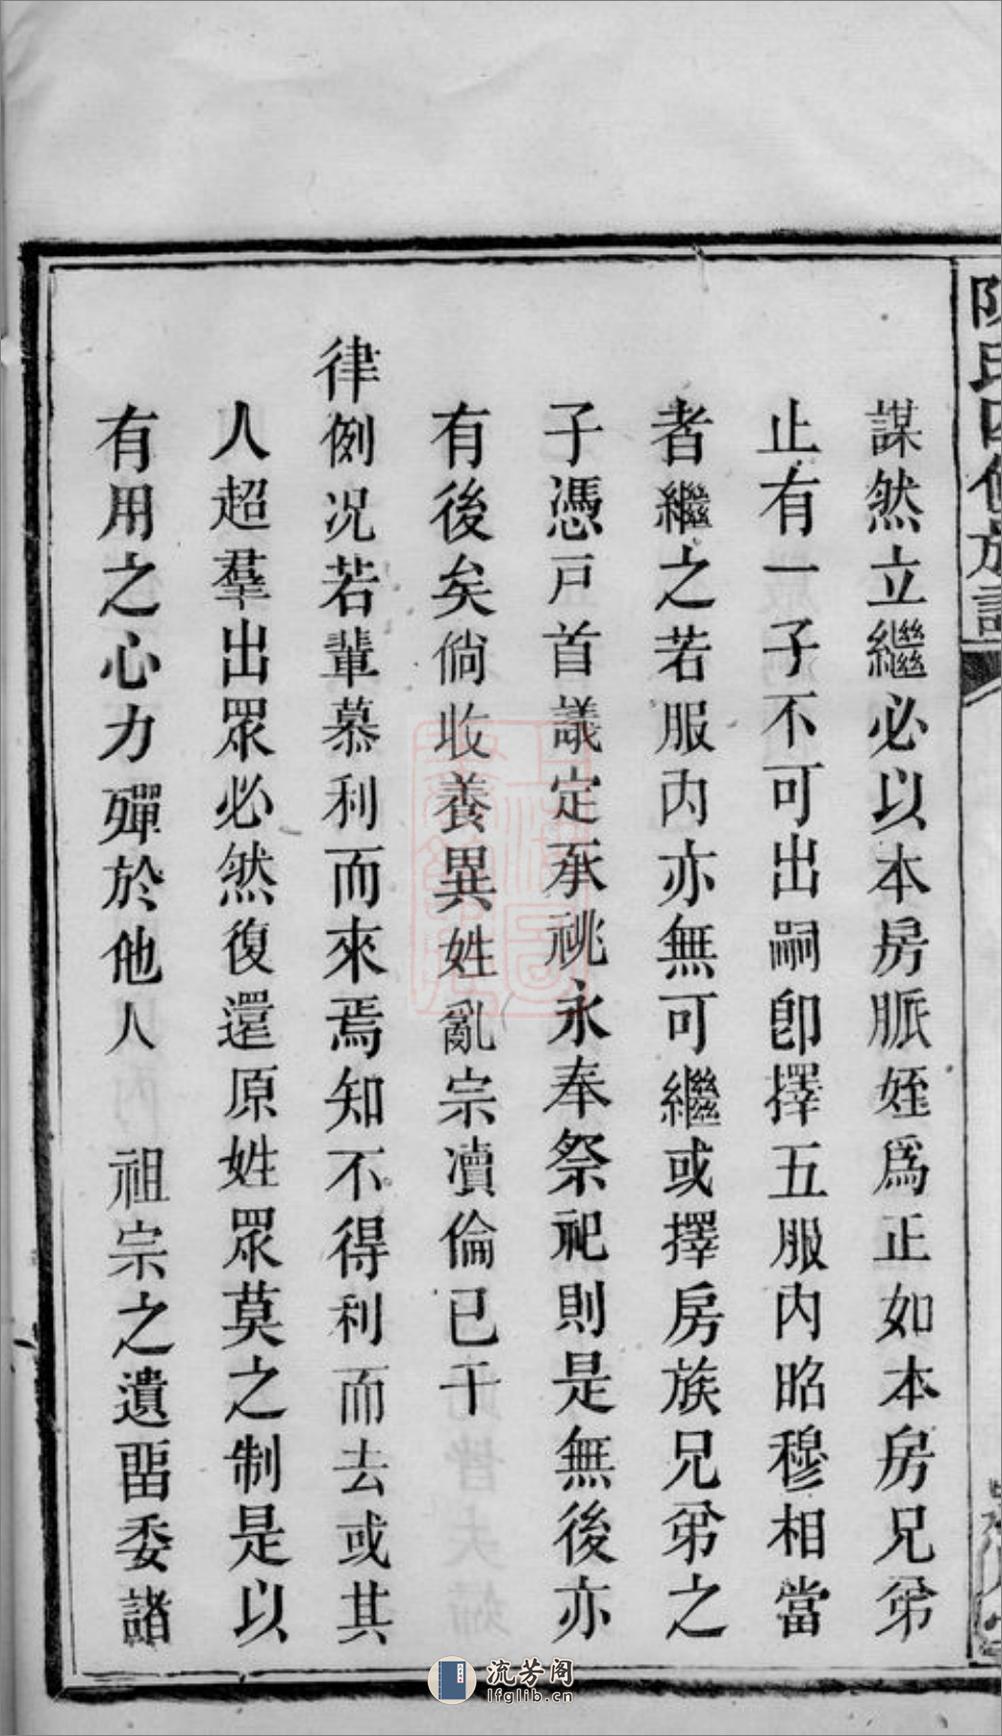 陳氏四修族譜
謀然立繼必以本房脈姪爲正如本房兄弟
止有一子不可出嗣卽擇五服內昭穆相當
者繼之若服內亦無可繼或擇房族兄弟之
子憑戶首議定承祧永奉祭祀則是無後亦
有後矣倘收養異姓亂宗凟倫已干
律例况若輩慕利而來焉知不得利而去或其
人超羣出眾必然復還原姓眾莫之制是以
有用之心力殫於他人　祖宗之遺畱委諸
流芳阁
lfglib.cn